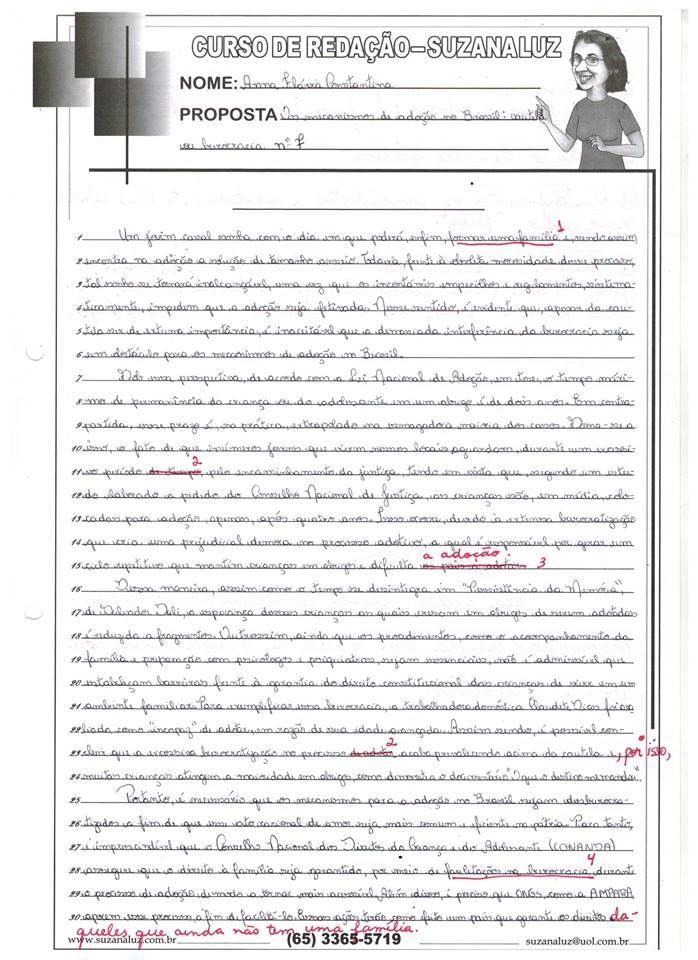 CURSO DE REDAÇÃO – SUZANA LUZ
NOME: Anna Flávia Constantina
PROPOSTA Os mecanismos de adoção no Brasil: cautela
ou burocracia nº 7
1 Um jovem casal sonha com o dia em que poderá, enfim, formar uma família 1 e, sendo assim,
2 encontra na adoção a solução de tamanho anseio. Todavia, frente à absoluta morosidade desse processo,
3 tal sonho se tornará inalcançável, uma vez que os incontáveis empecilhos e regulamentos, sistema-
4 ticamente, impedem que a adoção seja efetivada. Nesse sentido, é evidente que, apesar da cau-
5 tela ser de extrema importância, é inaceitável que a demasiada interferência da burocracia seja
6 um obstáculo para os mecanismos de adoção no Brasil.
7 Sob essa perspectiva, de acordo com a Lei Nacional de Adoção, em tese, o tempo máxi-
8 mo de permanência da criança ou do adolescente em um abrigo é de dois anos. Em contra-
9 partida, esse prazo é, na prática, extrapolado na esmagadora maioria dos casos. Soma-se a
10 isso, o fato de que inúmeros jovens que vivem nesses locais aguardam, durante um excessi-
11 vo período de tempo 2 pelo encaminhamento da justiça, tendo em vista que, segundo um estu-
12 do elaborado a pedido do Conselho Nacional de Justiça, as crianças são, em média, colo-
13 cadas para adoção, apenas, após quatro anos. Isso ocorre, devido à extensa burocratização
14 que cria uma prejudicial demora no processo adotivo, a qual é responsável por gerar um
15 ciclo repetitivo que mantém crianças em abrigos e dificulta a adoção. 3
16 Dessa maneira, assim como o tempo se desintegra em "Persistência da Memória",
17 de Salvador Dalí, a esperança dessas crianças as quais cresam em abrigos de serem adotadas
18 é reduzida a fragmentos. Outrossim, ainda que os procedimentos, como o acompanhamento da
19 família e preparação com psicólogos e psiquiatras, sejam essenciais, não é admissível que
20 estabeleçam barreiras frente à garantia do direito constitucional das crianças de viver em um
21 ambiente familiar. Para exemplificar essa burocracia, a trabalhadora doméstica Claudete Dias foi ava-
22 liada como "incapaz" de adotar, em razão de sua idade avançada. Assim sendo, é possível con-
23 cluir que a excessiva burocratização no processo de adotar 2 acaba prevalecendo acima da cautela e, por isso,
24 muitas crianças atingem a maioridade em abrigos, como demonstra o documentário "O que o destino me mandar".
25 Portanto, é necessário que os mecanismos para a adoção no Brasil sejam desburocra-
26 tizados a fim de que esse ato racional de amor seja mais comum e eficiente na pátria. Para tanto,
27 é imprescindível que o Conselho Nacional dos Direitos da Criança e do Adolescente (CONANDA)
28 assegure que o direito à família seja garantido, por meio de facilitações na burocracia 4 durante
29 o processo de adoção de modo a tornar mais acessível. Além disso, é preciso que ONGs, como a AMPARA,
30 apoiem esse processo a fim de facilitá-lo. Essas ações terão como fito um país que garante os direitos da-
queles, que ainda não tem uma família.
www.suzanaluz.com.br (65) 3365-5719 suzanaluz@uol.com.br